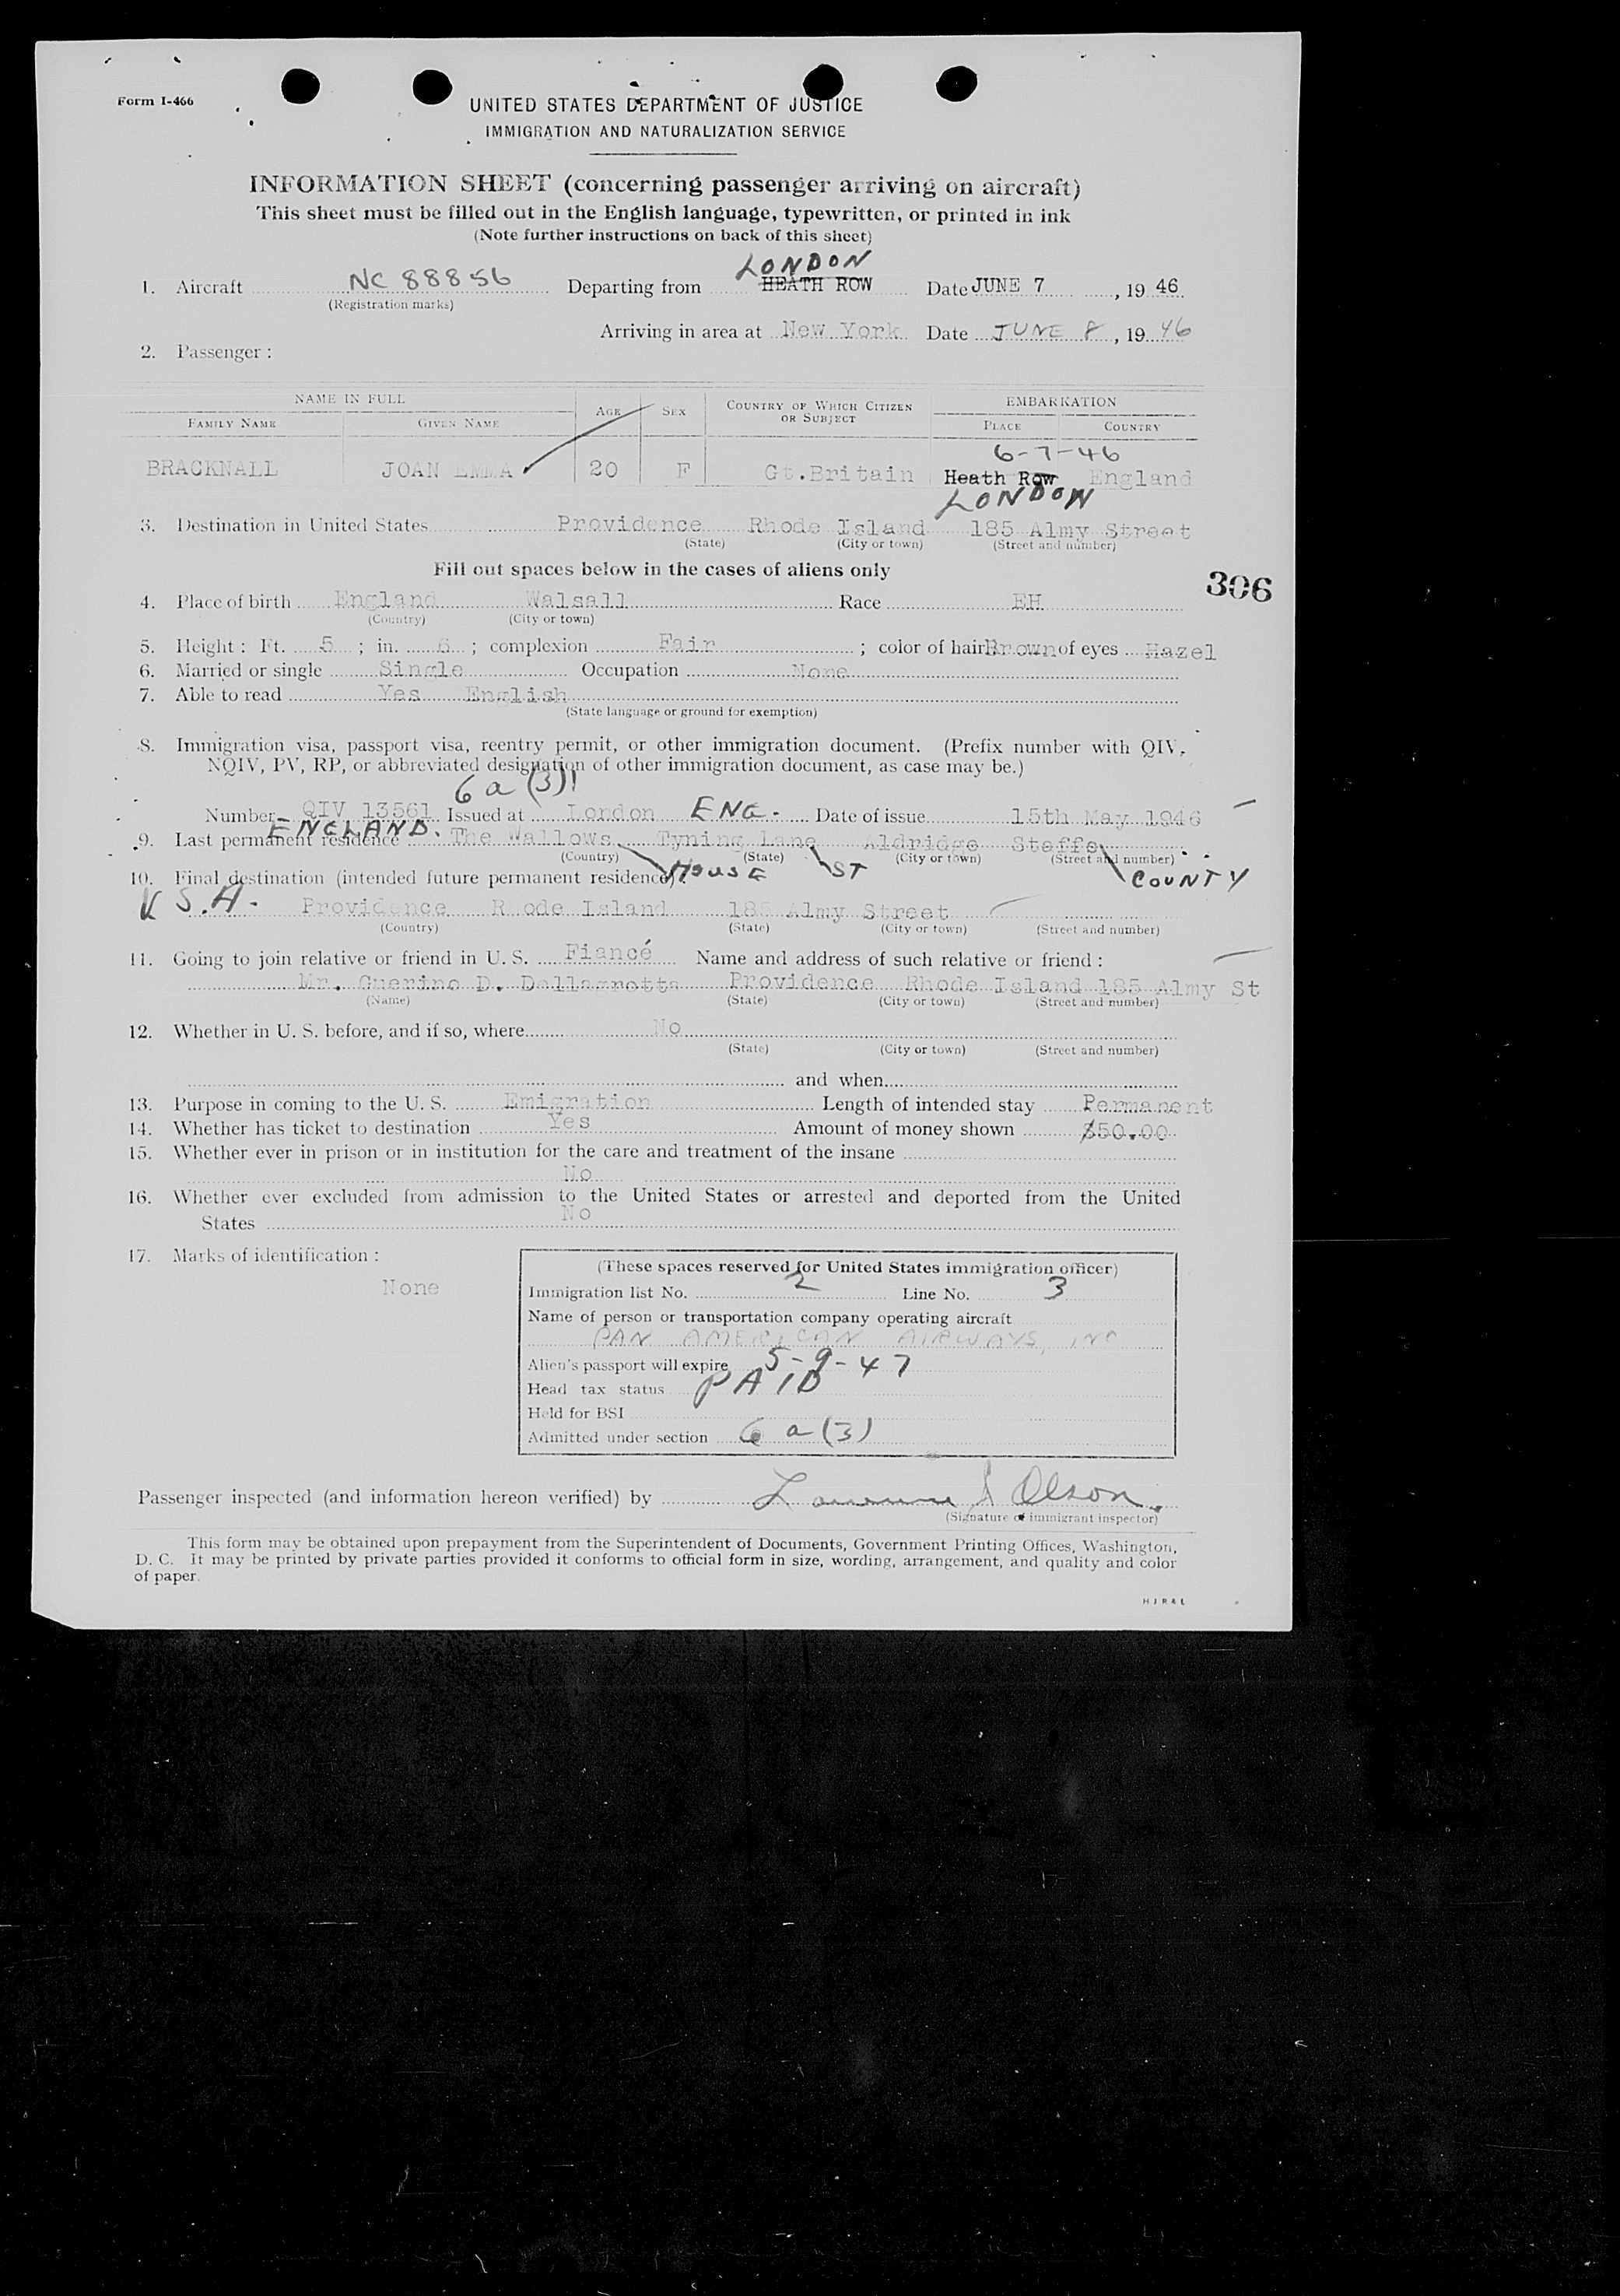 Form I-466
UNITED STATES DEPARTMENT OF JUSTICE
IMMIGRATION AND NATURALIZATION SERVICE
INFORMATION SHEET (concerning passenger arriving on aircraft)
This sheet must be filled out in the English language, typewritten, or printed in ink
(Note further instructions on back of this sheet)
LONDON
1. Aircraft NC 88856 Departing from HEATH ROW Date JUNE 7, 19 46
(Registration marks)
Arriving in area at New York Date JUNE 8, 19 46
2. Passenger:
NAME IN FULL
FAMILY NAME GIVEN NAME AGE SEX COUNTRY OF WHICH CITIZEN OR SUBJECT EMBARKATION
PLACE COUNTRY
6-7-46
BRACKNALL JOAN EMMA 20 F Gt.Britain Heath Row England
LONDON
3. Destination in United States Providence Rhode Island 185 Almy Street
(State) (City or town) (Street and number)
Fill out spaces below in the cases of aliens only
306
4. Place of birth England Walsall Race EH
(Country) (City or town)
5. Height: Ft. 5; in.; complexion Fair; color of hair Brown of eyes Hazel
6. Married or single Single Occupation None
7. Able to read Yes English
(State language or ground for exemption)
8. Immigration visa, passport visa, reentry permit, or other immigration document. (Prefix number with QIV,
NQIV, PV, RP, or abbreviated designation of other immigration document, as case may be.)
6 a (3)
Number QIV 13561 Issued at London ENG. Date of issue 15th May 1946
ENGLAND.
9. Last permanent residence The Wallows Tyning Lane Aldridge Staffs
(Country) (State) (City or town) (Street and number)
HOUSE ST COUNTY
10. Final destination (intended future permanent residence):
U S.A. Providence Rhode Island 185 Almy Street
(Country) (State) (City or town) (Street and number)
11. Going to join relative or friend in U. S. Fiancé Name and address of such relative or friend:
Mr. Guerino D. Dellagrotta Providence Rhode Island 185 Almy St
(Name) (State) (City or town) (Street and number)
12. Whether in U. S. before, and if so, where No
(State) (City or town) (Street and number)
and when
13. Purpose in coming to the U. S. Emigration Length of intended stay Permanent
14. Whether has ticket to destination Yes Amount of money shown $50.00
15. Whether ever in prison or in institution for the care and treatment of the insane
No
16. Whether ever excluded from admission to the United States or arrested and deported from the United
States No
17. Marks of identification:
None
(These spaces reserved for United States immigration officer)
Immigration list No. 2 Line No. 3
Name of person or transportation company operating aircraft
PAN AMERICAN AIRWAYS, INC
Alien's passport will expire 5-9-47
Head tax status PAID
Held for BSI
Admitted under section 6 a (3)
Passenger inspected (and information hereon verified) by Olson.
(Signature of immigrant inspector)
This form may be obtained upon prepayment from the Superintendent of Documents, Government Printing Offices, Washington,
D. C. It may be printed by private parties provided it conforms to official form in size, wording, arrangement, and quality and color
of paper.